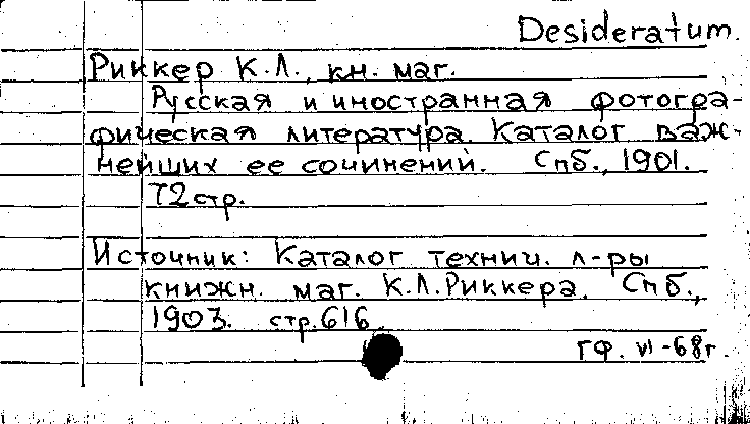 Desideratum.
Риккер К.Л., кн. маг.
Русская и иностранная фотогра-
фическая литература. Каталог важ-
нейших ее сочинений. Спб., 1901.
72 стр.
Источник: Каталог технич. л-ры
книжн. маг. К.Л.Риккера. Спб.,
1903. стр. 616.
ГФ. VI-68г.